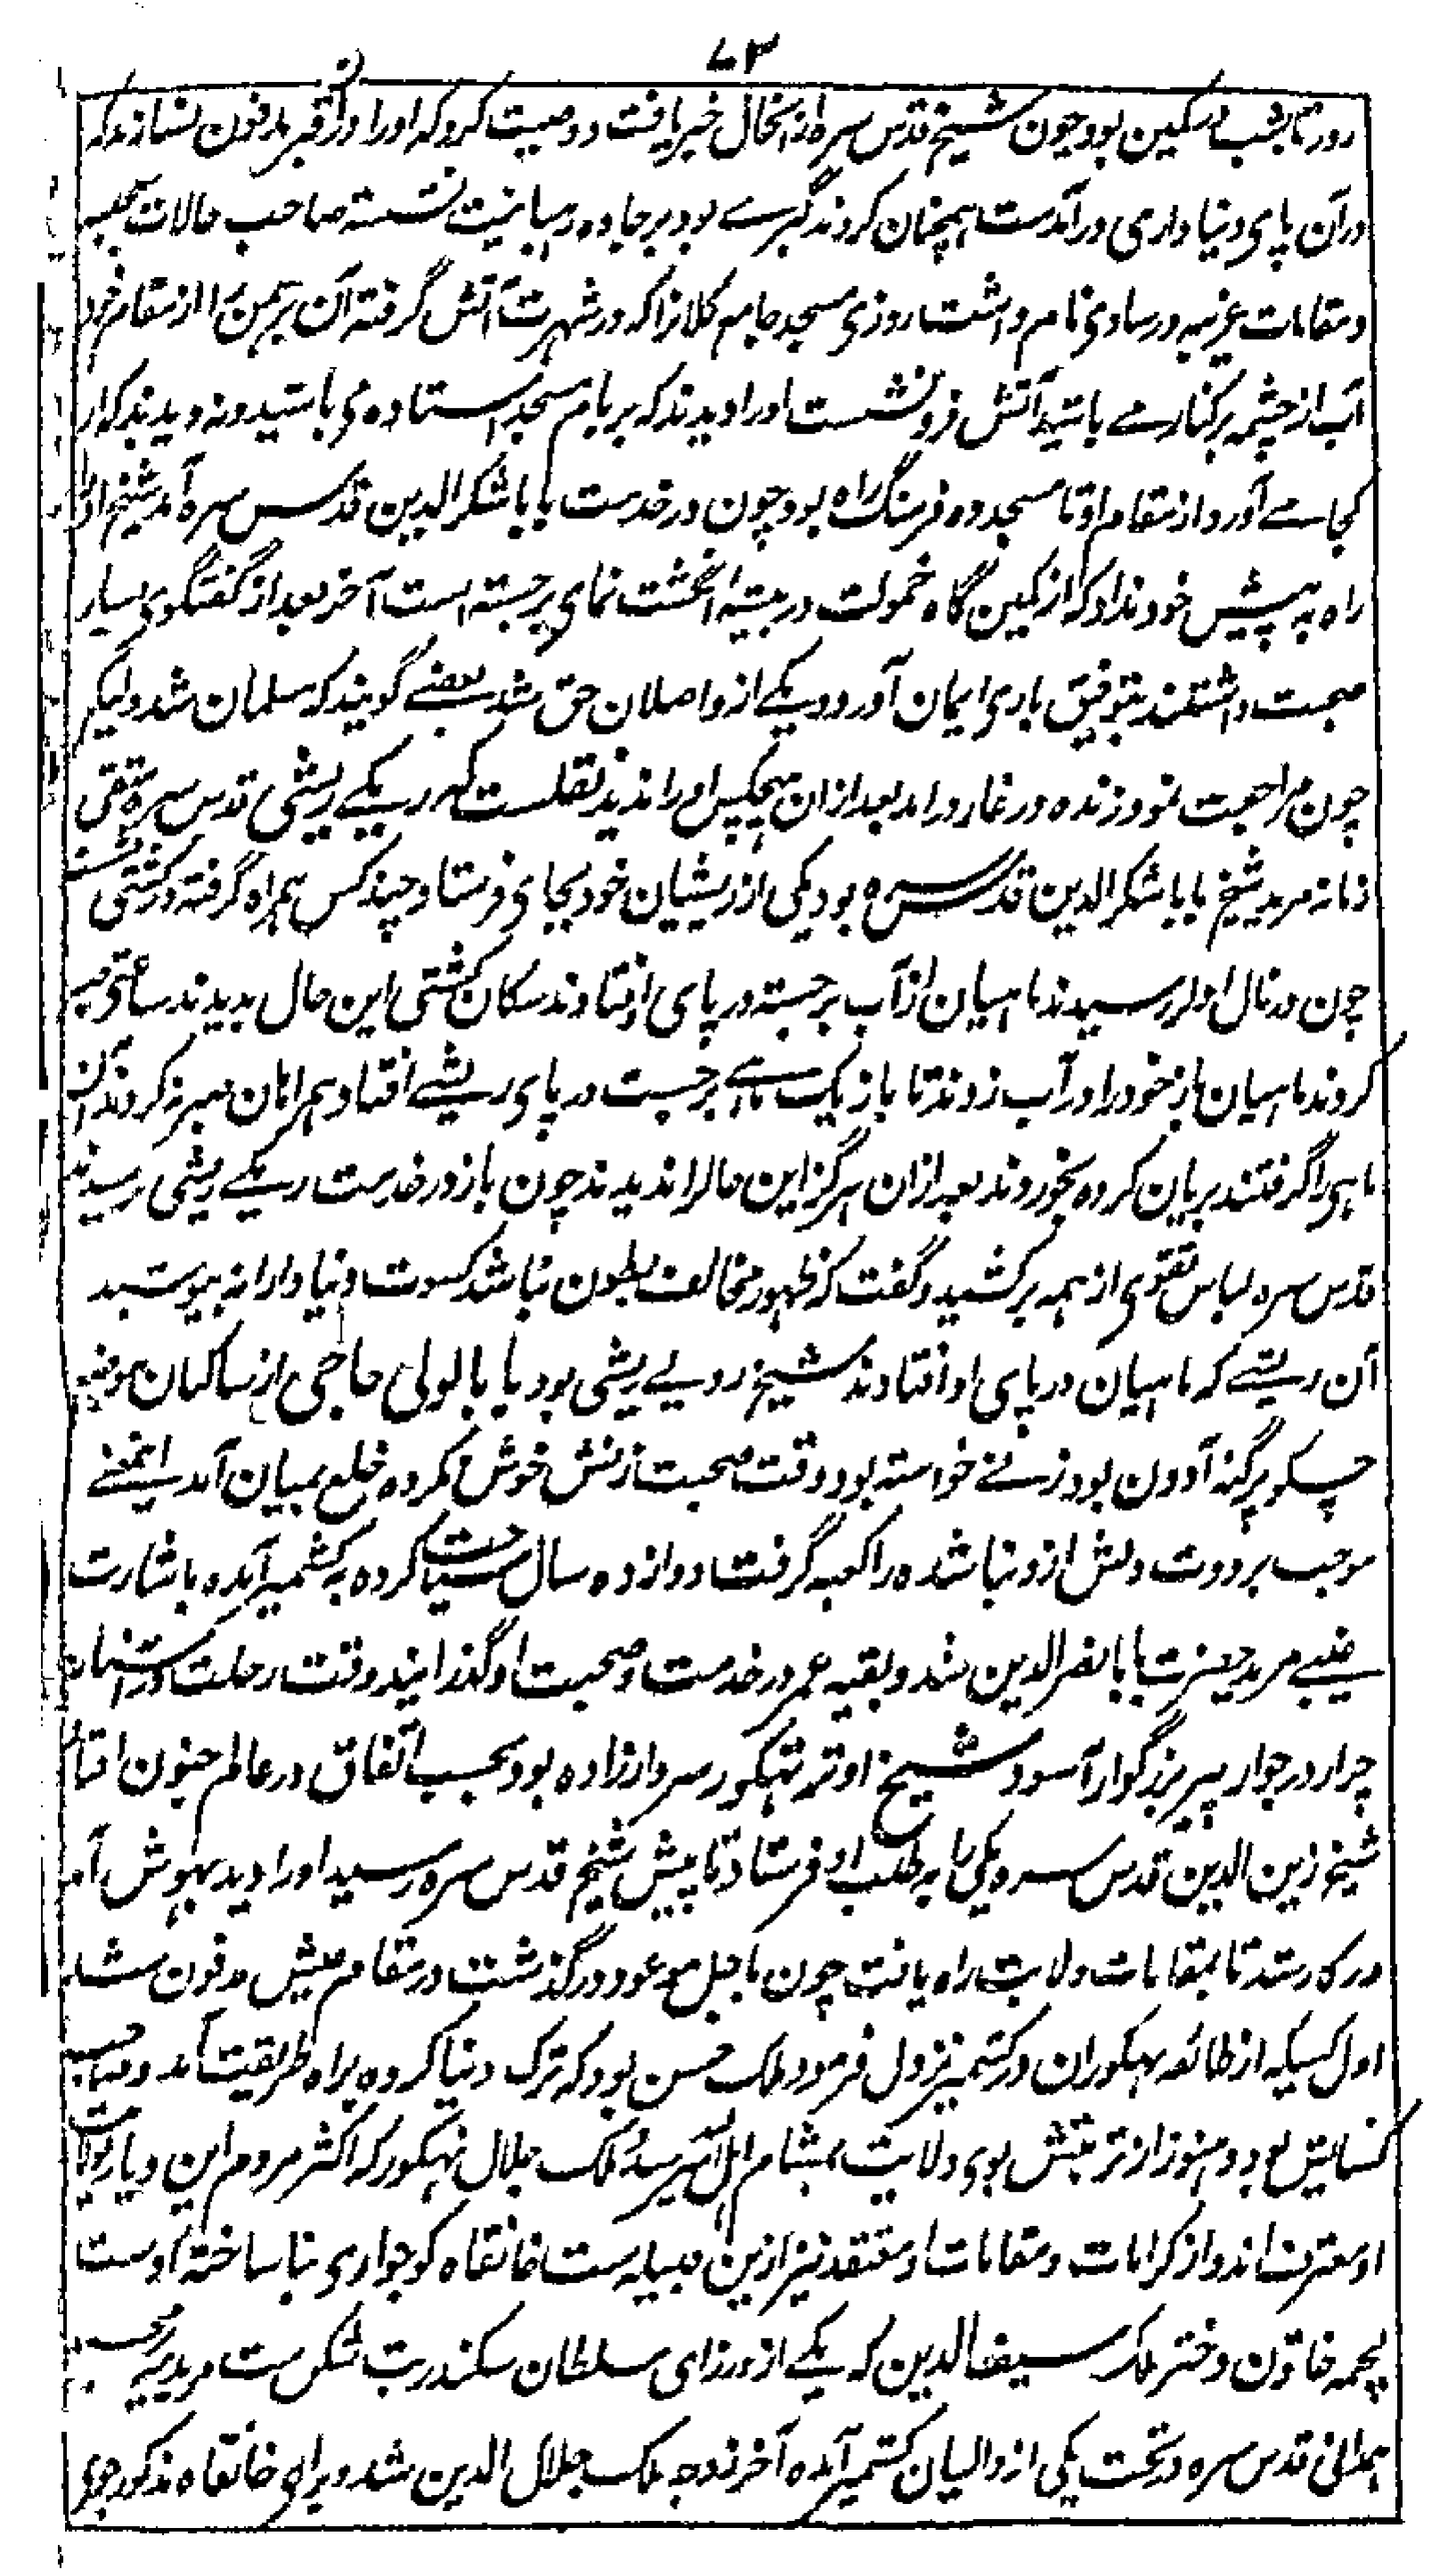 ۷۳
روز تا بشب مسکین بود چون شیخ قدس سره ازین حال خبر یافت وصیت کرد که او را در آن قبر مدفون نسازند که
در آن پای دنیاداری درآمدست همچنان کردند گبرے بود بر جاده رهبانیت نشسته صاحب حالات عجیبه
و مقامات غریبه درسادی نام داشت روزی مسجد جامع کلانرا که در شهرست آتش گرفته آن برهمن را از مقام خود
آب از چشمه برکنار مے پاشید آتش فرونشست او را دیدند که بر بام مسجد استاده می پاشید و نه دیدند که از
کجا مے آورد از مقام او تا مسجد ده فرسنگ راه بود چون در خدمت بابا شکرالدین قدس سره آمد شیخ او را
راه به پیش خود نداد که از کمین گاه خمولت در بیشه انگشت نمای برجسته است آخر بعد از گفتگوی بسیار
صحبت داشتند بتوفیق باری ایمان آورد و یکے از واصلان حق شد بعضے گویند که مسلمان شد ولیکن
چون مراجعت نمود زنده در غار درآمد بعد از ان هیچکس او را ندید نقلست که ریگے ریشی قدس سره متقی
زمانه مرید شیخ بابا شکرالدین قدس سره بود یکی از ریشیان خود بجای فرستاد چند کس همراه گرفته در کشتی نشست
چون در نال اولر رسیدند ماهیان از آب برجسته در پای او افتادند سکان کشتی این حال بدیدند ساعتی صبر
کردند ماهیان باز خود را در آب زدند تا باز یک ماهے برجست در پای ریشے افتاد همراهان صبر نکردند آن
ماهی را گرفتند بریان کرده بخوردند بعد ازان هرگز این حال را ندیدند چون باز در خدمت ریگے ریشی رسیدند
قدس سره لباس تقوی از همه برکشید و گفت که ظهور مخالف بطون نباشد کسوت دنیادارانه بپوشید
آن ریشے که ماهیان در پای او افتادند شیخ روپے ریشی بود بابا لولی حاجی از ساکنان موضع
چسکو پرگنه آدون بود زنے خواسته بود وقت صحبت زنش خوش نکرده خلع بمیان آمد اینمعنے
موجب برودت دلش از دنیا شده راه کعبه گرفت دوازده سال سیاحت کرده به کشمیر آمده باشارت
غیبے مرید حضرت بابا نصرالدین شد و بقیه عمر در خدمت و صحبت او گذرانید وقت رحلت در آستان
چرار در جوار پیر بزرگوار آسود شیخ اوتر تهکور سردارزاده بود بحسب اتفاق در عالم جنون افتاد
شیخ زین الدین قدس سره یکی را به طلب او فرستاد تا پیش شیخ قدس سره رسید او را دید بهوش آمد
در کار شد تا بمقامات ولایت راه یافت چون باجل موعود درگذشت در مقام عیش مدفون شد
اول کسیکه از طائفه تهکوران در کشمیر نزول فرمود ملک حسن بود که ترک دنیا کرده براه طریقت آمد و صاحب
کشایش بود و هنوز از تربتش بوی ولایت بمشام اهل الله میرسد ملک جلال تهکور که اکثر مردم این دیار بولایت
او معترف اند و از کرامات و مقامات او معتقد نیز ازین قبیله ست خانقاه کوجواری بنا ساخته اوست
لچمه خاتون دختر ملک سیف الدین که یکے از وزرای سلطان سکندر بت شکن ست مرید میر محمد
همدانی قدس سره در تحت یکی از والیان کشمیر آمده آخر زوجه ملک جلال الدین شد و برای خانقاه مذکور جوی